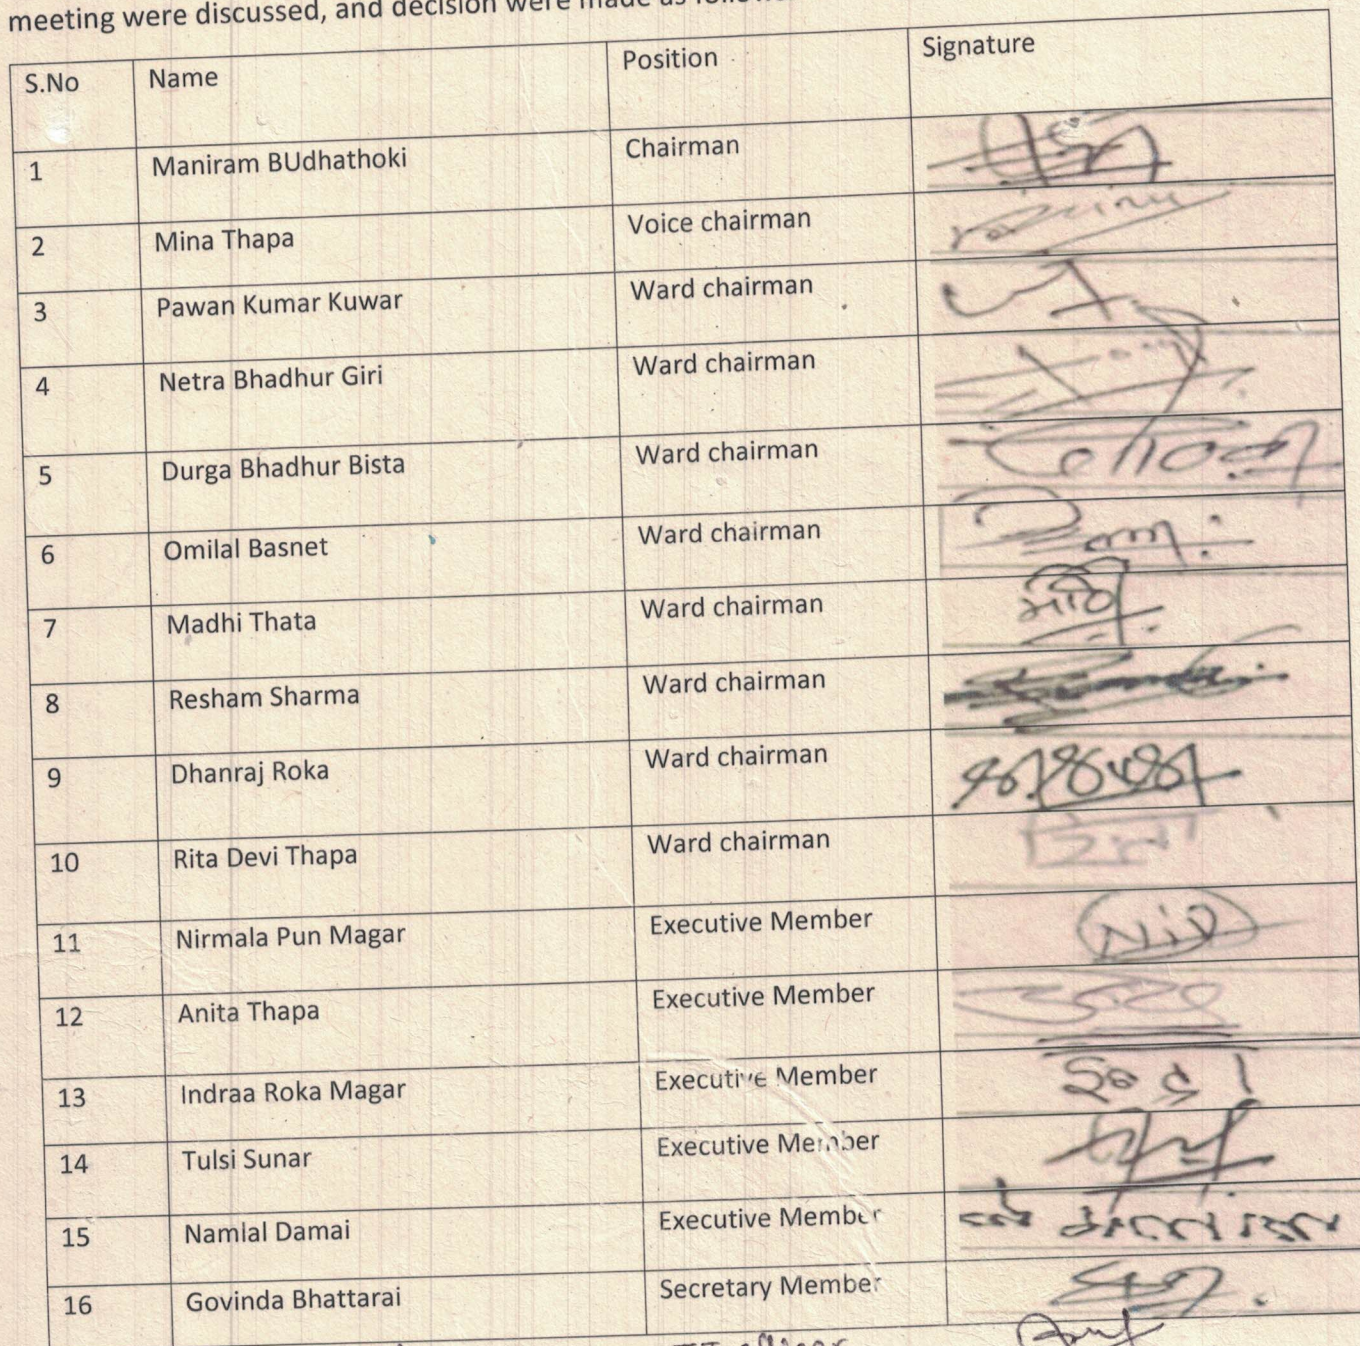 meeting were discussed, and decision were made as
S.No Name Position Signature
1 Maniram BUdhathoki Chairman
2 Mina Thapa Voice chairman
3 Pawan Kumar Kuwar Ward chairman
4 Netra Bhadhur Giri Ward chairman
5 Durga Bhadhur Bista Ward chairman
6 Omilal Basnet Ward chairman
7 Madhi Thata Ward chairman
8 Resham Sharma Ward chairman
9 Dhanraj Roka Ward chairman
10 Rita Devi Thapa Ward chairman
11 Nirmala Pun Magar Executive Member
12 Anita Thapa Executive Member
13 Indraa Roka Magar Executive Member
14 Tulsi Sunar Executive Member
15 Namlal Damai Executive Member
16 Govinda Bhattarai Secretary Member